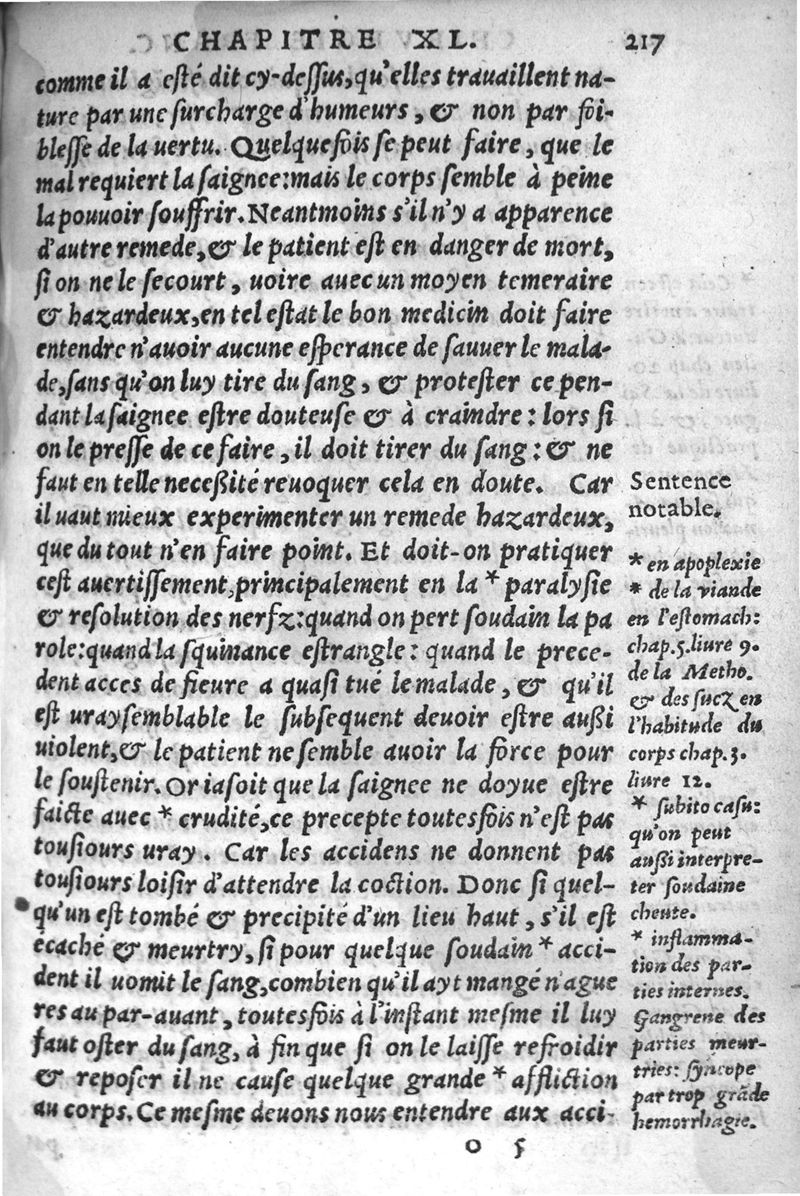 CHAPITRE XL. 217
comme il a esté dit cy-dessus, qu'elles trauaillent na-
ture par une surcharge d'humeurs, & non par foi-
blesse de la uertu. Quelquefois se peut faire, que le
mal requiert la saignee: mais le corps semble à peine
la pouuoir souffrir. Neantmoins s'il n'y a apparence
d'autre remede, & le patient est en danger de mort,
si on ne le secourt, uoire auec un moyen temeraire
& hazardeux, en tel estat le bon medicin doit faire
entendre n'auoir aucune esperance de sauuer le mala-
de, sans qu'on luy tire du sang, & protester ce pen-
dant la saignee estre douteuse & à craindre: lors si
on le presse de ce faire, il doit tirer du sang: & ne
faut en telle necessité reuoquer cela en doute. Car
il uaut mieux experimenter un remede hazardeux,
que du tout n'en faire point. Et doit-on pratiquer
cest auertissement, principalement en la * paralysie
& resolution des nerfz: quand on pert soudain la pa
role: quand la squinance estrangle: quand le prece-
dent acces de fieure a quasi tué le malade, & qu'il
est uraysemblable le subsequent deuoir estre aussi
uiolent, & le patient ne semble auoir la force pour
le soustenir. Or iasoit que la saignee ne doyue estre
faicte auec * crudité, ce precepte toutesfois n'est pas
tousiours uray. Car les accidens ne donnent pas
tousiours loisir d'attendre la coction. Donc si quel-
qu'un est tombé & precipité d'un lieu haut, s'il est
ecaché & meurtry, si pour quelque soudain * acci-
dent il uomit le sang, combien qu'il ayt mangé n'ague
res au par-auant, toutesfois à l'instant mesme il luy
faut oster du sang, à fin que si on le laisse refroidir
& reposer il ne cause quelque grande * affliction
au corps. Ce mesme deuons nous entendre aux acci-
O 5
Sentence
notable.
* en apoplexie
* de la viande
en l'estomach:
chap. 5. liure 9.
de la Metho.
& des sucz en
l'habitude du
corps chap. 3.
liure 12.
* subito casu:
qu'on peut
aussi interpre-
ter soudaine
cheute.
* inflamma-
tion des par-
ties internes.
Gangrene des
parties meur-
tries: syncope
par trop grãde
hemorrhagie.